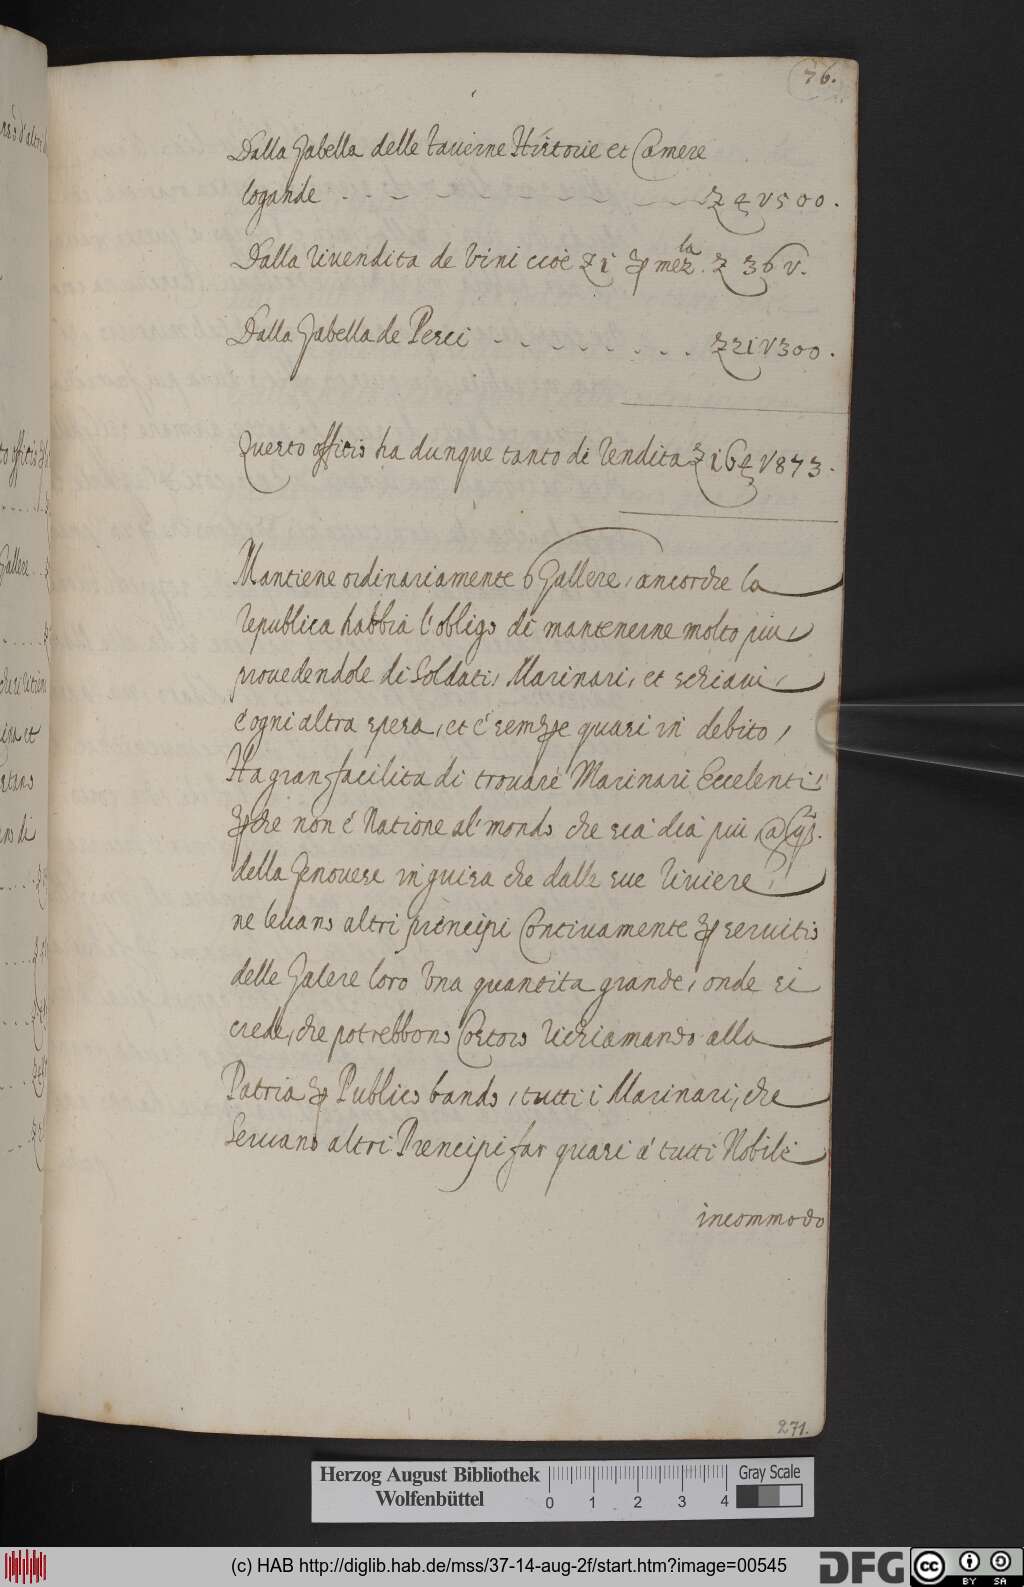 76.
Dalla Gabella delle taverne Historie et Camere
logande . . . . . . . . . . . £ 4 V 500.
Dalla Vivendita de Vini cioè £ 1 ꝑ mez.la £ 36 V.
Dalla Gabella de Pesci . . . . . . . £ 21 V 300.
Questo offitio ha dunque tanto di Vendita £ 164 V 873.
Mantiene ordinariamente 6 Gallere, ancorche la
Republica habbia l'obligo di mantenerne molto più,
provedendole di Soldati, Marinari, et schiavi,
e ogni altra spesa, et è semꝑe quasi in debito,
Ha gran facilita di trovare Marinari Eccelenti
ꝑche non é Natione al mondo che sia dià più a
della Genovese in guisa che dalle sue Riviere
ne levano altri principi Continuamente ꝑ servitio
delle Galere loro Una quantita grande, onde si
crede, che potrebbono Costoro Richiamando alla
Patria ꝑ Publico bando, tutti i Marinari, che
Servano altri Prencipi far quasi a tutti Nobile
incommodo
271.
Herzog August Bibliothek
Wolfenbüttel
0 1 2 3 4
Gray Scale
(c) HAB http://diglib.hab.de/mss/37-14-aug-2f/start.htm?image=00545
DFG
cc BY SA